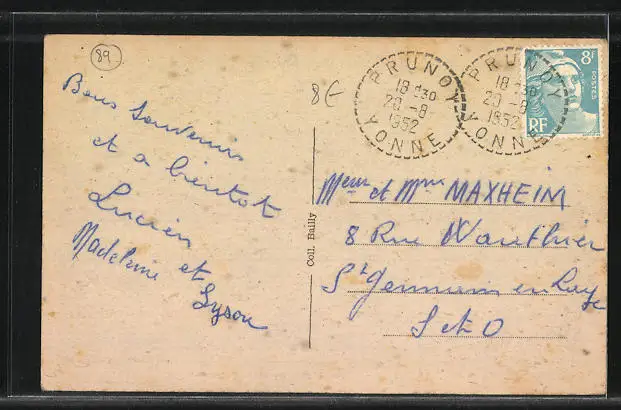 89
8€
PRUNOY
18 H30
20-8
1952
YONNE
PRUNOY
18 H30
20-8
1952
YONNE
8F
POSTES
RF
Bons souvenirs
et a bientot
Lucien
Madeleine et
Lyson
Coll. Bailly
Meur et Mme MAXHEIM
8 Rue Wauthier
St Germain en Laye
S et O